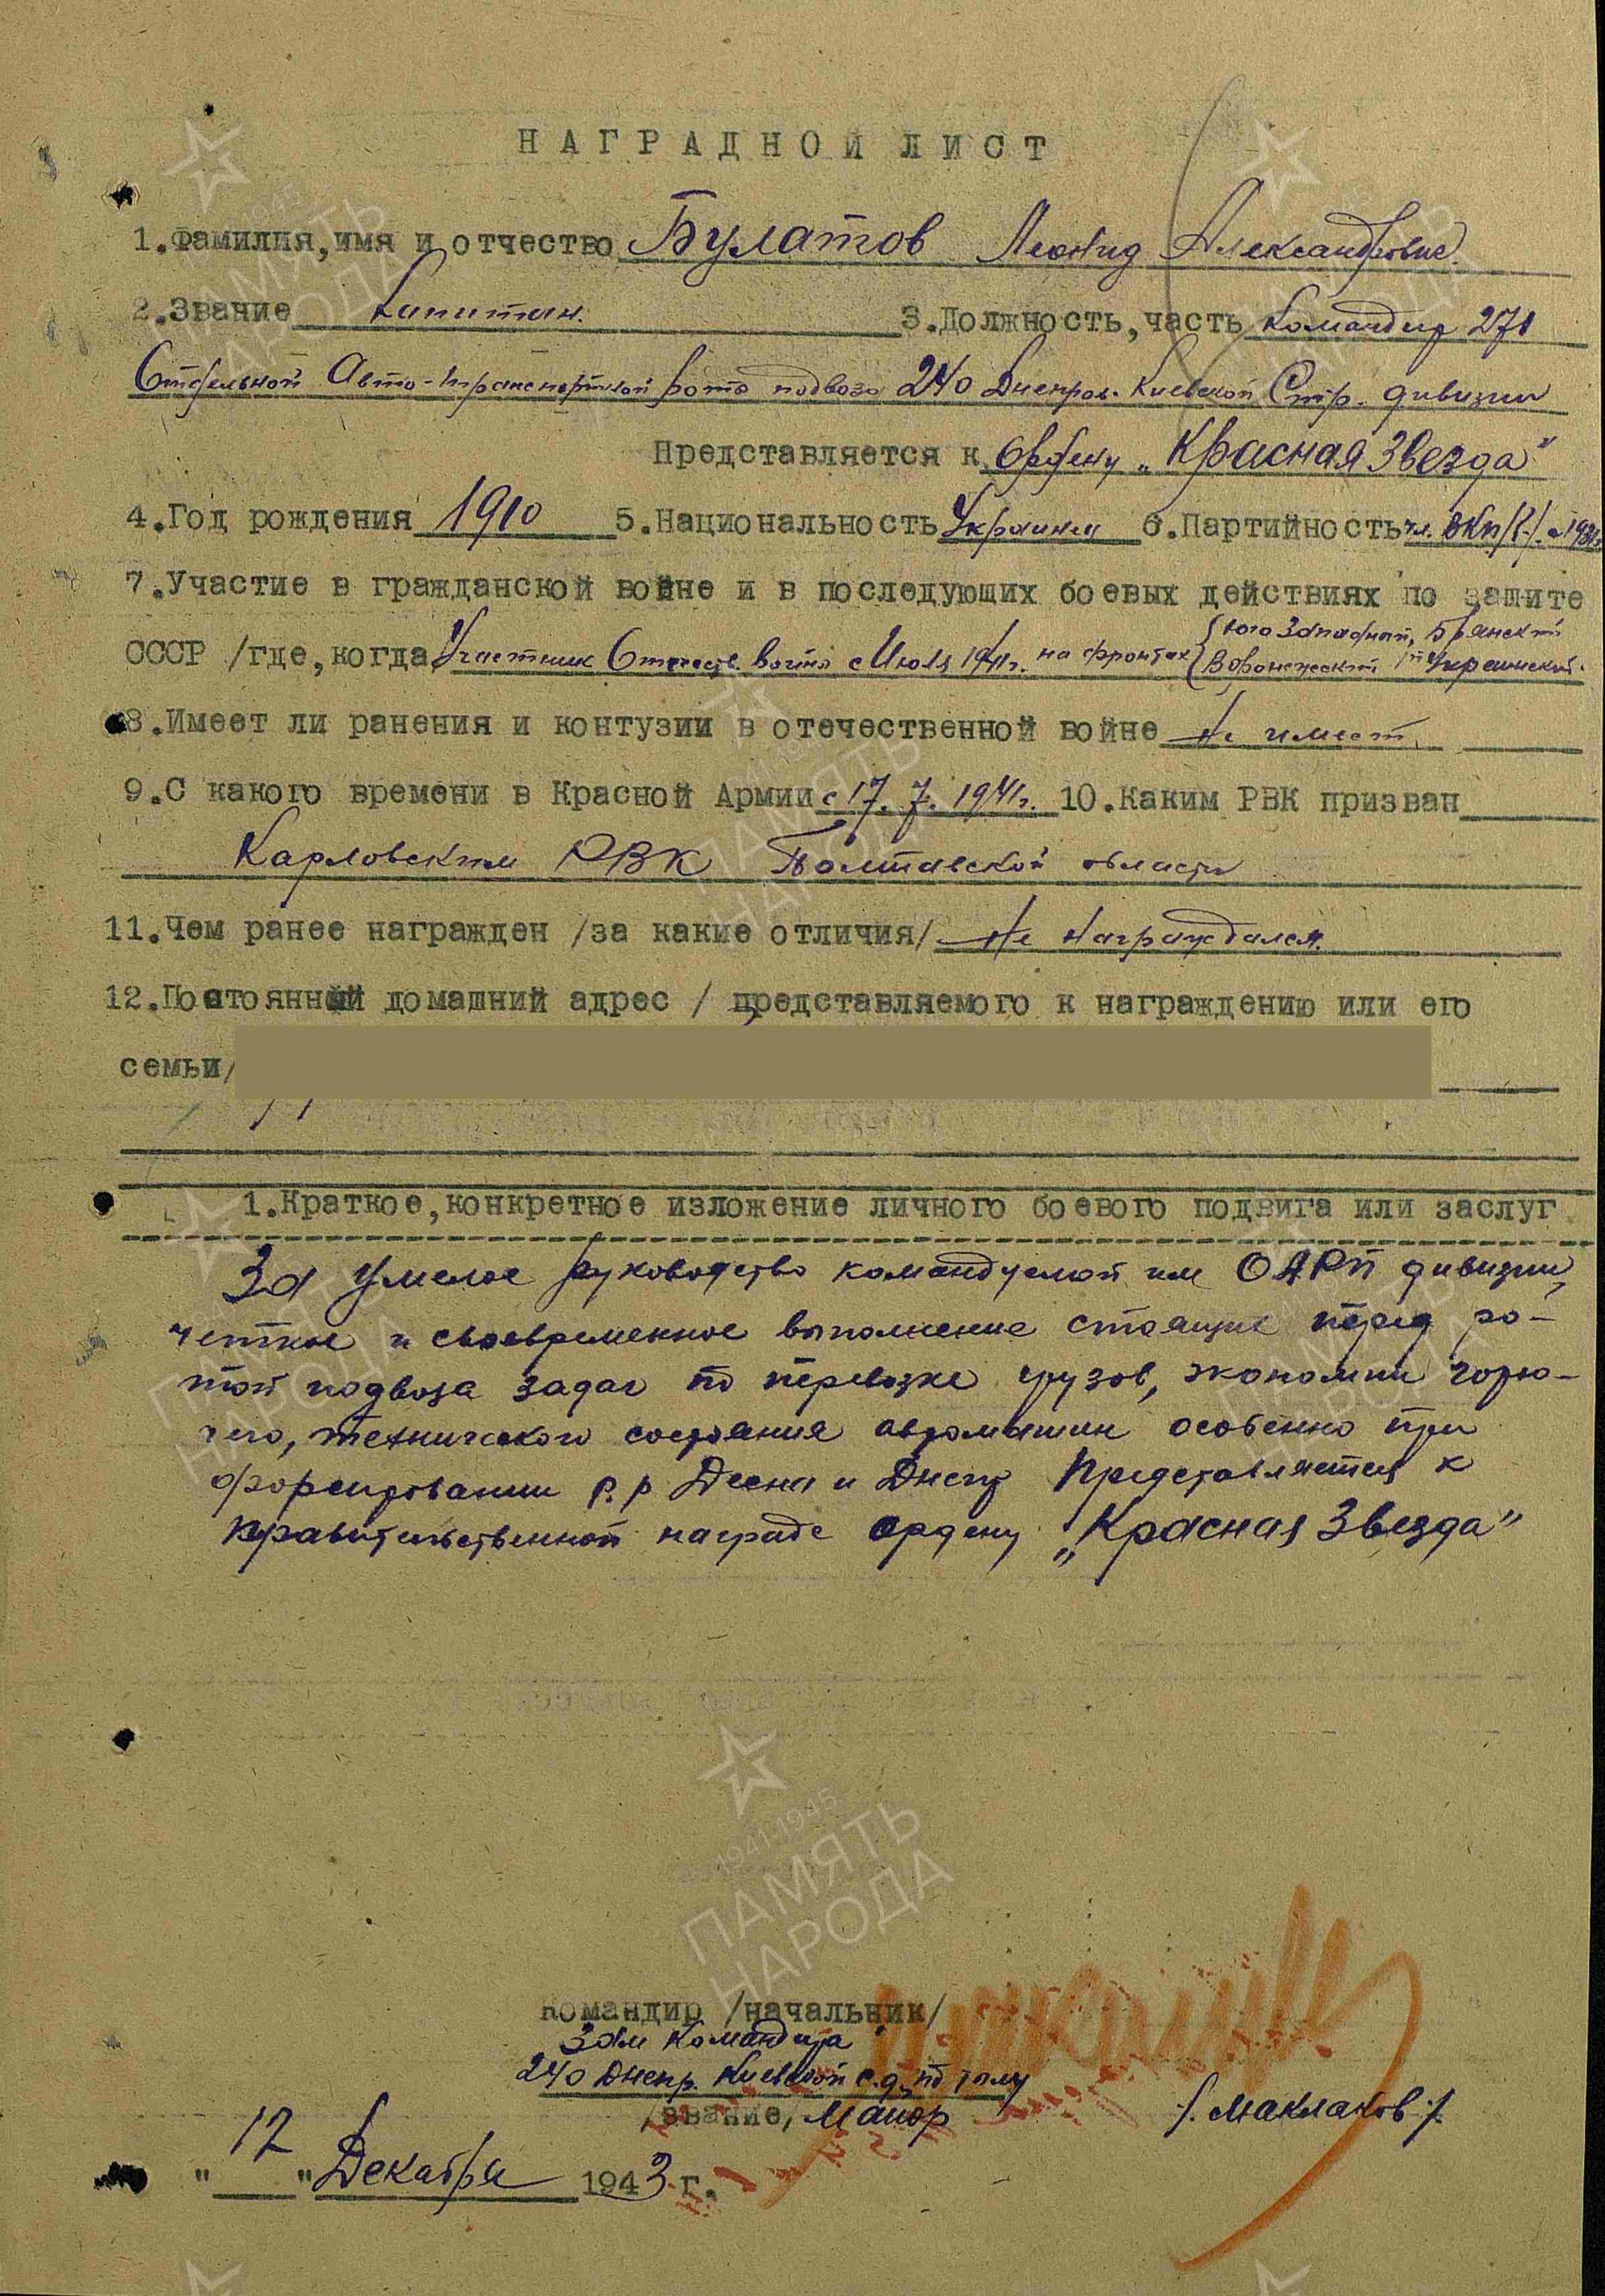 НАГРАДНОЙ ЛИСТ
1.Фамилия,имя и отчество Булатов Леонид Александрович.
2.Звание капитан. 3.Должность,часть Командир 271
Отдельной Авто-транспортной роты подвоза 240 Днепров. Киевской Стр. дивизии
Представляется к Ордену „Красная Звезда"
4.Год рождения 1910 5.Национальность Украинец 6.Партийность чл. ВКП/б/. с 1931г.
7.Участие в гражданской войне и в последующих боевых действиях по защите
СССР /где,когда Участник Отечеств. войны с Июля 1941г. на фронтах Юго Западный, Брянский
Воронежский 1й Украинский.
8.Имеет ли ранения и контузии в отечественной войне Не имеет.
9.С какого времени в Красной Армии с 17. 7. 1941г. 10.Каким РВК призван
Карловским РВК Полтавской области
11.Чем ранее награжден /за какие отличия/ Не награждался.
12.Постоянный домашний адрес / представляемого к награждению или его
семьи/
1.Краткое,конкретное изложение личного боевого подвига или заслуг
За умелое руководство командуемой им ОАРП дивизии,
четкое и своевременное выполнение стоящие перед ро-
той подвоза задач по перевозке грузов, экономии горю-
чего, технического состояния автомашин особенно при
форсировании р.р Десна и Днепр Представляется к
правительственной награде ордену „Красная Звезда"
Командир /начальник/
Зам командира
240 Днепр. Киевской с.д. по тылу
/звание/ Майор /. Маклаков ./.
"12" Декабря 1943 г.
ПАМЯТЬ
НАРОДА
1941-1945